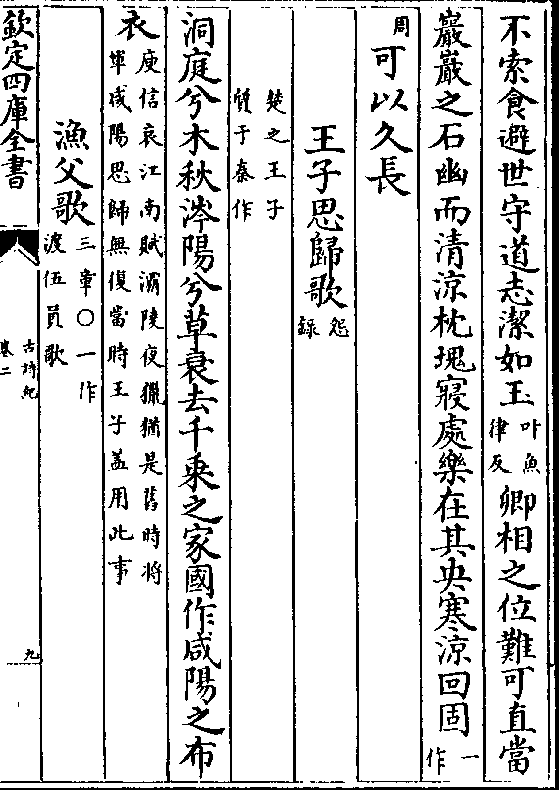 不索食避世守道志潔如玉叶魚律反卿相之位難可直當
巖巖之石幽而清涼枕塊寢處樂在其央寒涼回固一作
周可以久長
王子思歸歌怨録
楚之王子
質于秦作
洞庭兮木秋涔陽兮草衰去千乘之家國作咸陽之布
衣庾信哀江南賦灞陵夜獵猶是舊時將
軍咸陽思歸無復當時王子盖用此事
漁父歌三章〇一作
渡伍員歌
欽定四庫全書
古詩紀
卷二
九